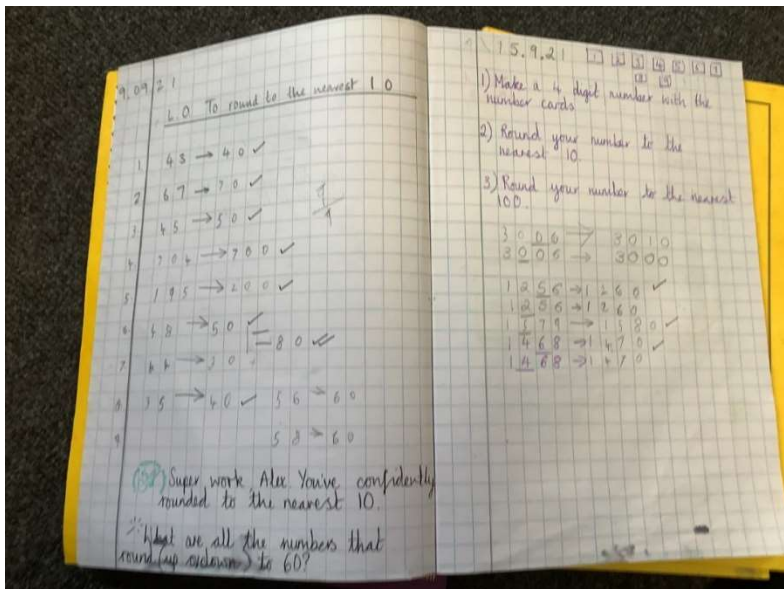 9.09.21
L.O. To round to the nearest 10
1. 43 → 40 ✓
2 67 → 70 ✓
3. 45 → 50 ✓
4. 704 → 700 ✓
5. 195 → 200 ✓
6 48 → 50 ✓
= 80 ✓
7 → 30
8 35 → 40 ✓ 56 → 60
9 58 → 60
Super work Alex. You've confidently
rounded to the nearest 10.
What are all the numbers that
round (up or down) to 60?
15.9.21 1 2 3 4 5 6 7
8 9
1) Make a 4 digit number with the
number cards
2) Round your number to the
nearest 10.
3) Round your number to the nearest
100.
3006 → 3010
3006 → 3000
1256 → 1260 ✓
1256 → 1260
1379 → 1380 ✓
1468 → 1470 ✓
1468 → 1470